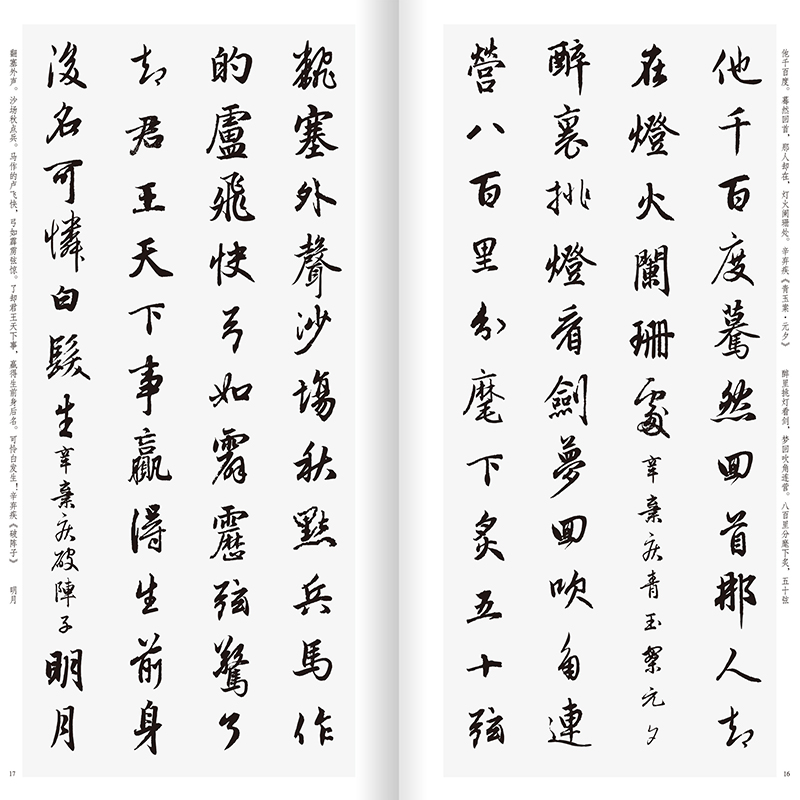 他千百度。蓦然回首，那人却在，灯火阑珊处。辛弃疾《青玉案·元夕》 醉里挑灯看剑，梦回吹角连营。八百里分麾下炙，五十弦
他千百度驀然回首那人却
在燈火闌珊處辛棄疾青玉案元夕
醉裏挑燈看劍夢回吹角連
營八百里分麾下炙五十弦
16
翻塞外聲沙場秋點兵馬作
的盧飛快弓如霹靂弦驚了
却君王天下事贏得生前身
後名可憐白髮生辛棄疾破陣子明月
翻塞外声。沙场秋点兵。马作的卢飞快，弓如霹雳弦惊。了却君王天下事，赢得生前身后名。可怜白发生！辛弃疾《破阵子》 明月
17